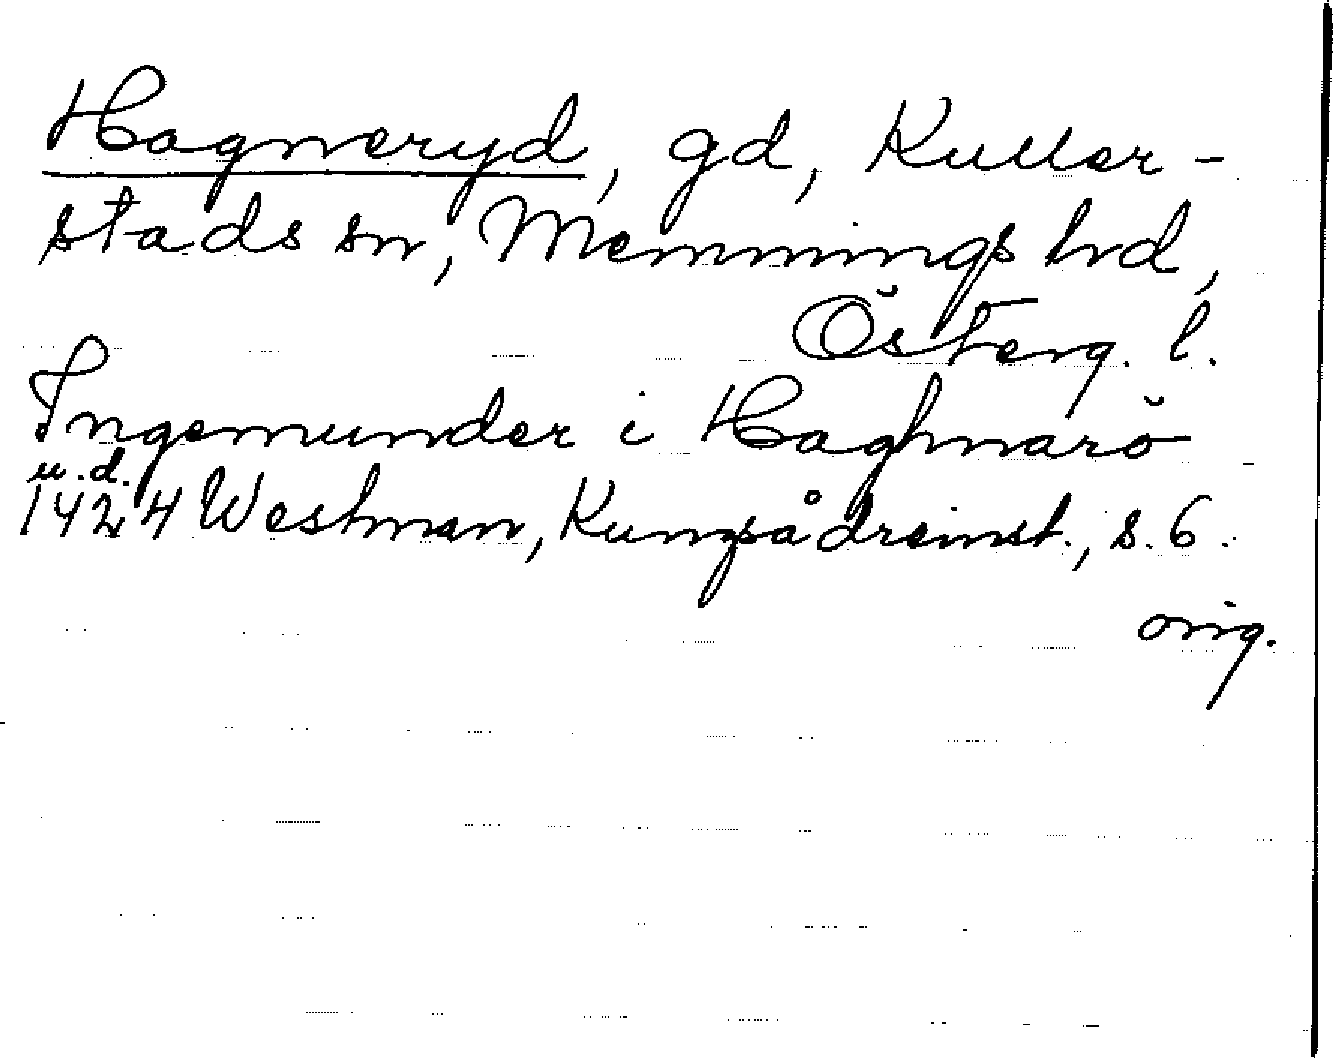 Hagneryd, gd, Kuller-
stads sn, Memmings hd,
Österg. l.
Ingemunder i Haghnarö
u.d.
1424 Westman, Kungsådreinst., s. 6.
orig.